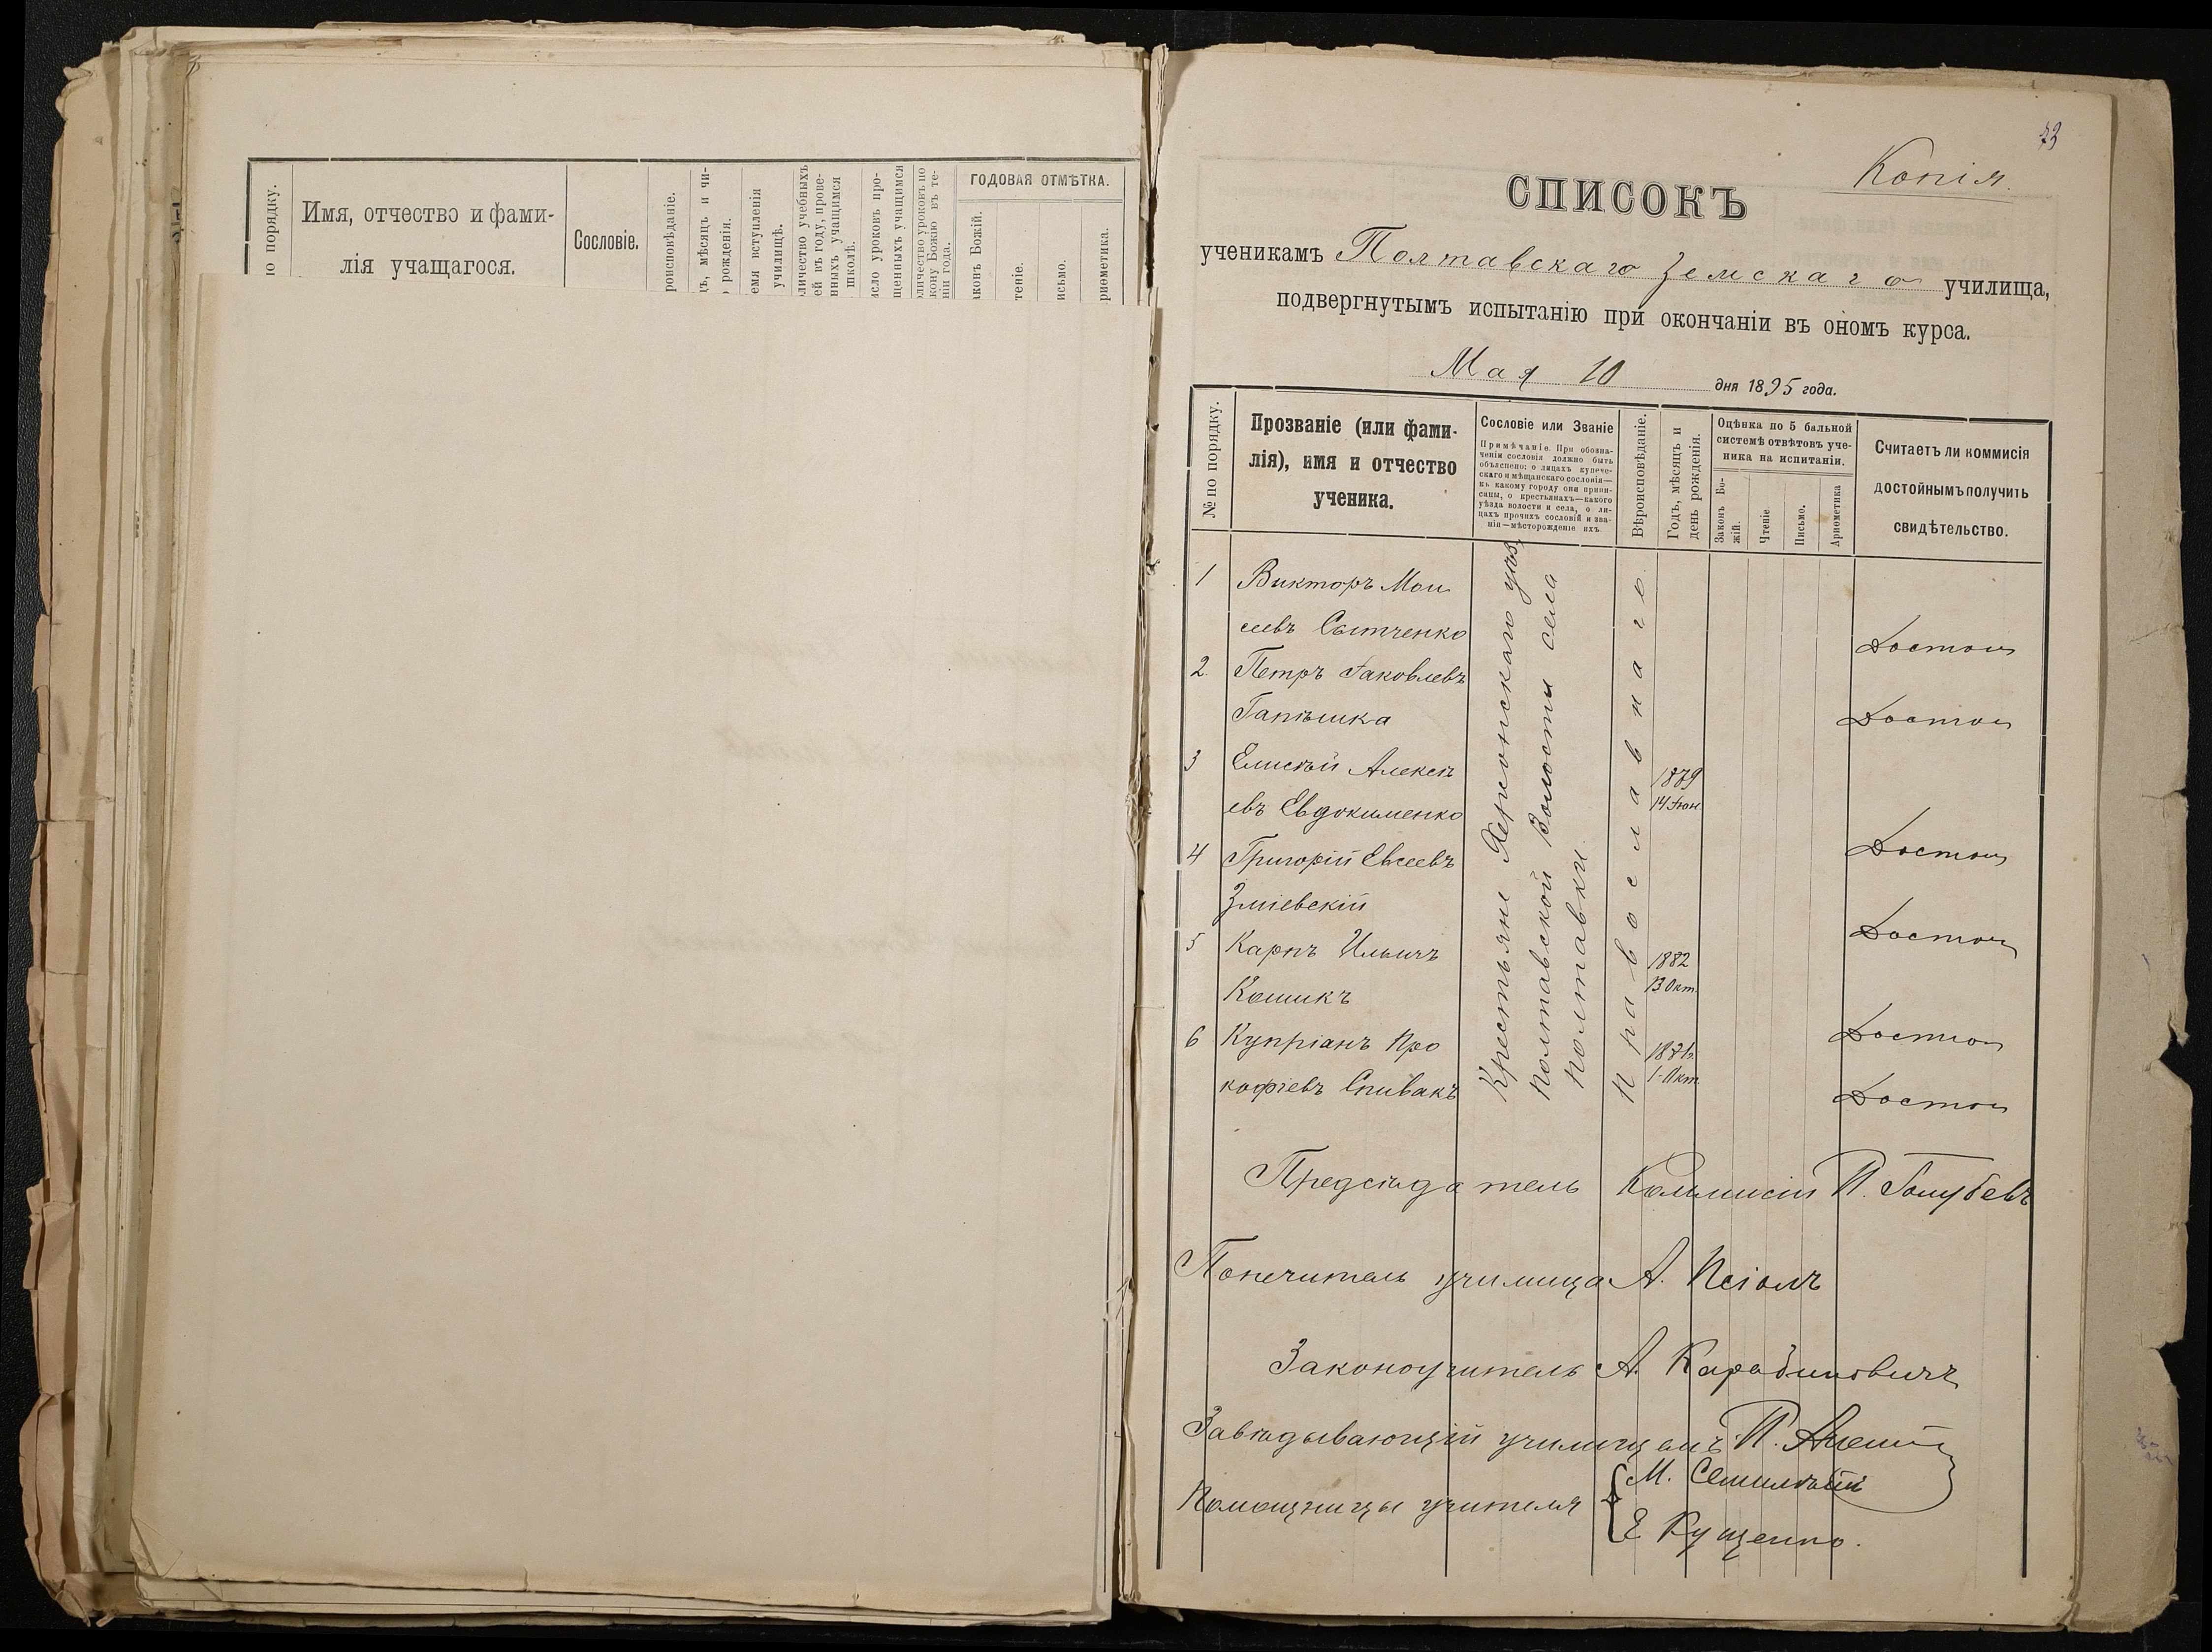 по порядку.
Имя, отчество и фами-
лія учащагося.
Сословіе.
роисповѣданіе.
мѣсяцъ и чи-
рожденія.
вступленія
училищѣ.
личество учебныхъ
въ году, прове-
нныхъ учащимся
школѣ.
число уроковъ про-
щенныхъ учащимся
личество уроковъ по
кону Божію въ те-
ніи года.
ГОДОВАЯ ОТМѢТКА.
аконъ Божій.
теніе.
исьмо.
риѳметика.
73
Копія.
СПИСОКЪ
ученикамъ Полтавскаго Земскаго училища,
подвергнутымъ испытанію при окончаніи въ ономъ курса.
Мая 10 дня 1895 года.
№ по порядку.
Прозваніе (или фами-
лія), имя и отчество
ученика.
Сословіе или Званіе
Примѣчаніе. При обозна-
ченіи сословія должно быть
объяснено: о лицахъ купече-
скаго и мѣщанскаго сословія—
къ какому городу они припи-
саны, о крестьянахъ—какого
уѣзда волости и села, о ли-
цахъ прочихъ сословій и зва-
нія—мѣсторожденіе ихъ.
Вѣроисповѣданіе.
Годъ, мѣсяцъ и
день рожденія.
Оцѣнка по 5 бальной
системѣ отвѣтовъ уче-
ника на испытаніи.
Законъ Бо-
жій.
Чтеніе.
Письмо.
Ариѳметика
Считаетъ ли коммисія
достойнымъ получить
свидѣтельство.
Крестьяне Херсонскаго уѣз.
Полтавской Волости села
Полтавки.
Православнаго
1 Викторъ Мои
сеевъ Сытченко Достоин
2. Петръ Яковлевъ
Гапѣшка Достоин
3 Елисѣй Алексѣ 1879
евъ Евдокименко 14 Іюн. Достоин
4 Григорій Евсеевъ
Зміевскій Достоин
5 Карпъ Ильичъ 1882
Кошикъ 13 Окт. Достоин
6 Купріанъ Про 1881г.
кофіевъ Спивакъ 1-Окт. Достоин
Предсѣдатель Коммисіи П. Голубевъ
Попечитель училища А. Псіолъ
Законоучитель А. Карабиновичъ
Завѣдывающій училищемъ П.
Помощницы учителя М.
Е Кущенко.